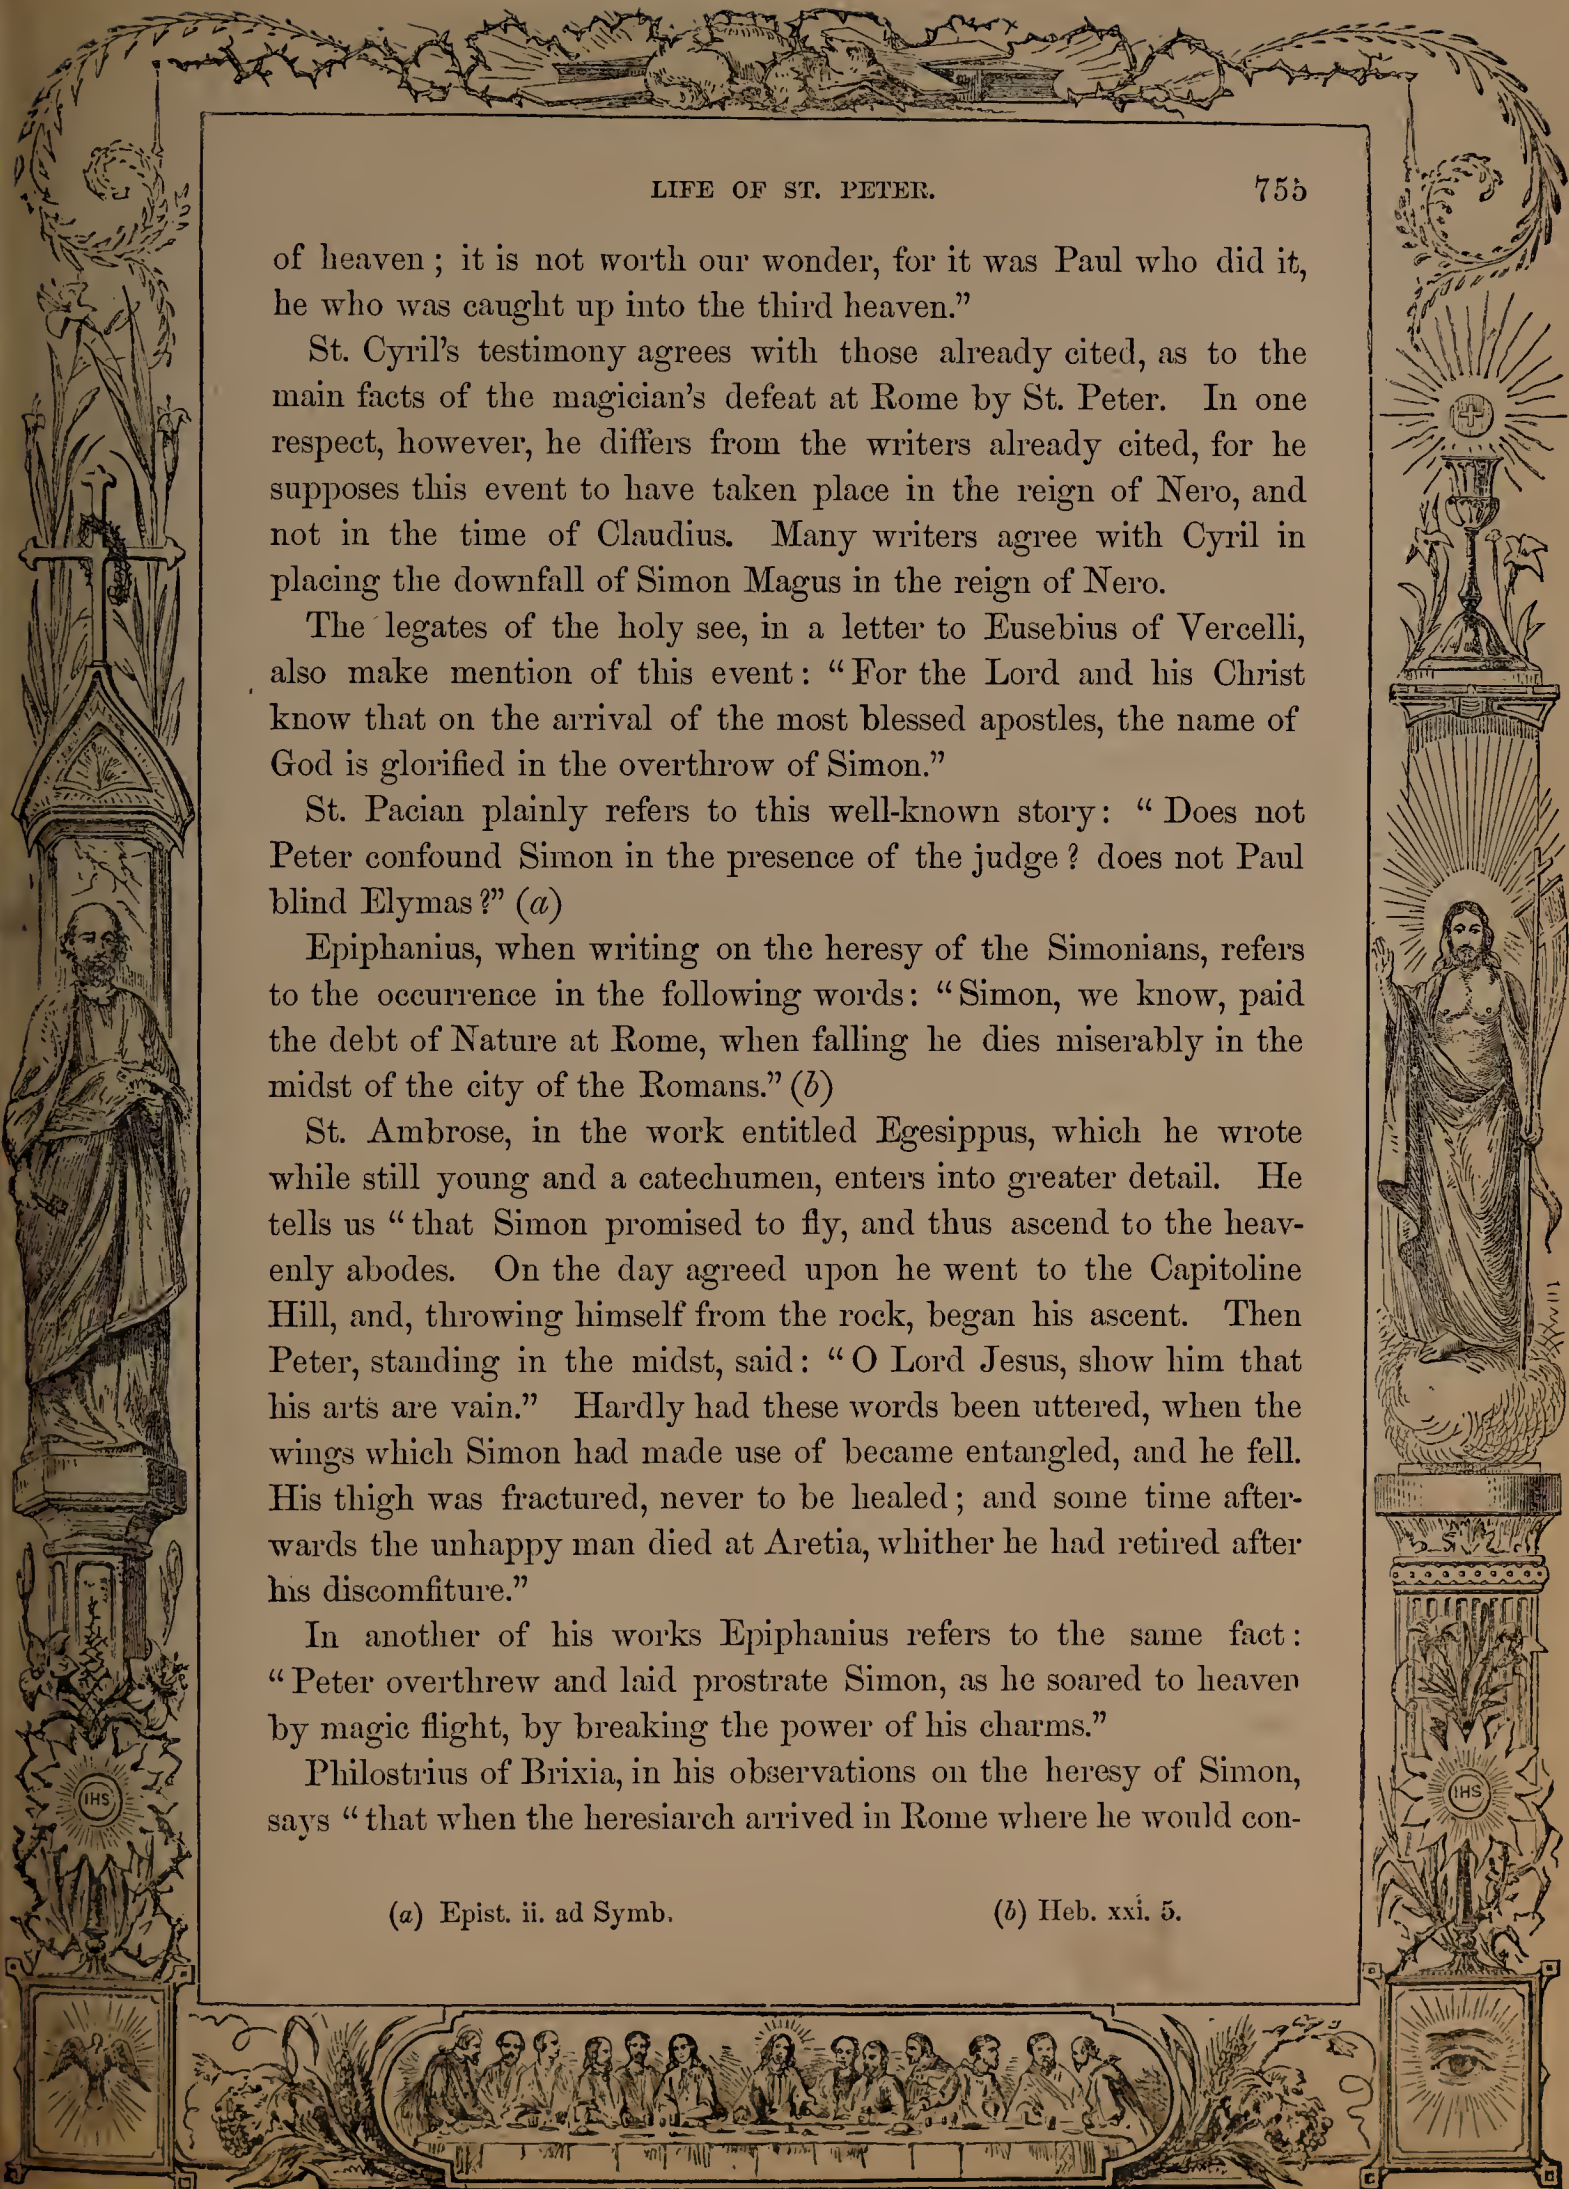 LIFE OF ST. PETER. 755
of heaven ; it is not worth our wonder, for it was Paul who did it,
he who was caught up into the third heaven.”
St. Cyril’s testimony agrees with those already cited, as to the
main facts of the magician’s defeat at Rome by St. Peter. In one
respect, however, he differs from the writers already cited, for he
supposes this event to have taken place in the reign of Nero, and
not in the time of Claudius. Many writers agree with Cyril in
placing the downfall of Simon Magus in the reign of Nero.
The legates of the holy see, in a letter to Eusebius of Vercelli,
also make mention of this event : “ For the Lord and his Christ
know that on the arrival of the most blessed apostles, the name of
God is glorified in the overthrow of Simon.”
St. Pacian plainly refers to this well-known story : “ Does not
Peter confound Simon in the presence of the judge ? does not Paul
blind Elymas ?” (a)
Epiphanius, when writing on the heresy of the Simonians, refers
to the occurrence in the following words : “ Simon, we know, paid
the debt of Nature at Rome, when falling he dies miserably in the
midst of the city of the Romans.” (b)
St. Ambrose, in the work entitled Egesippus, which he wrote
while still young and a catechumen, enters into greater detail. He
tells us “ that Simon promised to fly, and thus ascend to the heav-
enly abodes. On the day agreed upon he went to the Capitoline
Hill, and, throwing himself from the rock, began his ascent. Then
Peter, standing in the midst, said : “ O Lord Jesus, show him that
his arts are vain.” Hardly had these words been uttered, when the
wings which Simon had made use of became entangled, and he fell.
His thigh was fractured, never to be healed ; and some time after-
wards the unhappy man died at Aretia, whither he had retired after
his discomfiture.”
In another of his works Epiphanius refers to the same fact :
“ Peter overthrew and laid prostrate Simon, as he soared to heaven
by magic flight, by breaking the power of his charms.”
Philostrius of Brixia, in his observations on the heresy of Simon,
says “ that when the heresiarch arrived in Rome where he would con-
(a) Epist. ii. ad Symb. (b) Heb. xxi. 5.
IHS
IHS